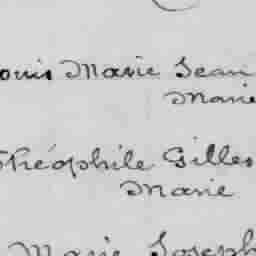 ouis Marie Jean
Marie
Théophile Gilles
Marie
Marie Joseph